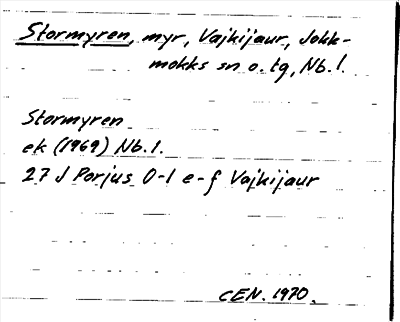 Stormyren, myr, Vajkijaur, Jokk-
mokks sn o. tg, Nb. l.
Stormyren
ek (1969) Nb. l.
27 J Porjus 0-1 e-f Vajkijaur
CEN. 1970.